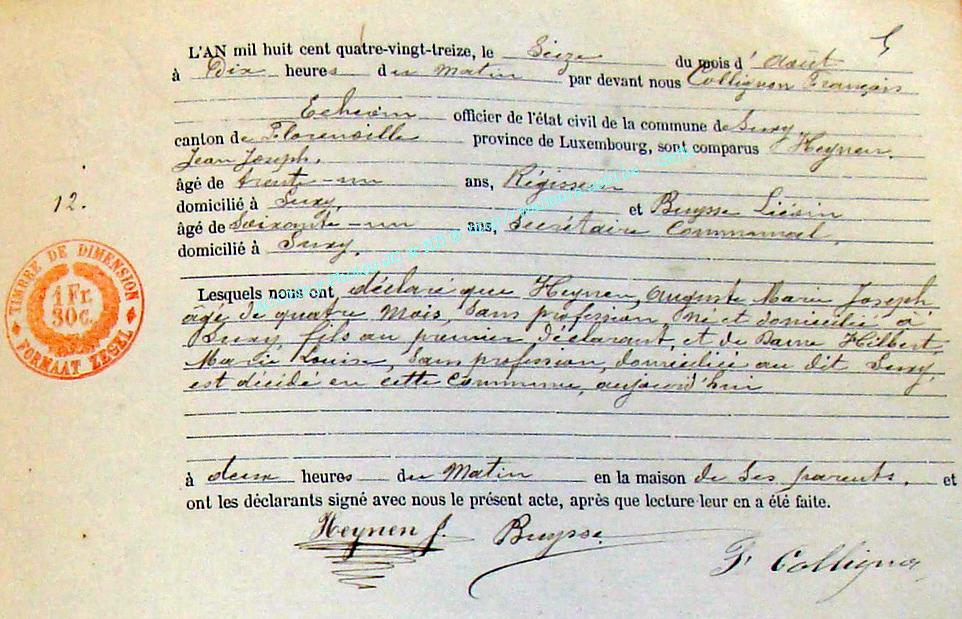 5
L'AN mil huit cent quatre-vingt-treize, le Seize du mois d'Août
à Dix heures du Matin par devant nous Collignon François
Echevin officier de l'état civil de la commune de Suxy,
canton de Florenville province de Luxembourg, sont comparus Heynen,
Jean Joseph,
âgé de trente-un ans, Régisseur
domicilié à Suxy, et Buysse Liévin
âgé de Soixante-un ans, Secrétaire Communal,
domicilié à Suxy,
12.
TIMBRE DE DIMENSION
1 Fr.
30c.
FORMAAT ZEGEL
Lesquels nous ont déclaré que Heynen, Auguste Marie Joseph
âgé de quatre mois, sans profession, né et domicilié à
Suxy, fils au premier déclarant, et de Dame Hilbert,
Marie Louise, sans profession, domiciliée au dit Suxy,
est décédé en cette Commune, aujourd'hui
à deux heures du Matin en la maison de ses parents, et
ont les déclarants signé avec nous le présent acte, après que lecture leur en a été faite.
Heynen J. Buysse
F. Collignon